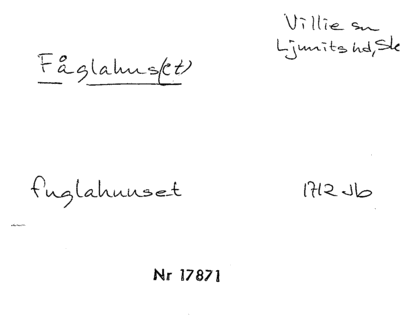 Villie sn
Ljunits hd, Sk
Fåglahus(et)
fuglahuuset 1712 Jb
Nr 17871